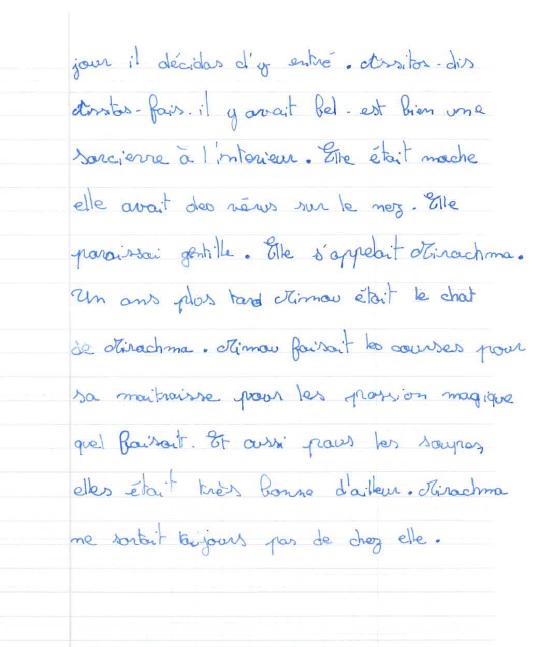 jour il décidas d'y entré. Assitos-dis
Assitos-fais. il y avait bel-est bien une
sorcierre à l'interieur. Elle était moche
elle avait des vérus sur le nez. Elle
paraissai gentille. Elle s'appelait Mirachma.
Un ans plus tard Mimou était le chat
de Mirachma. Mimou faisait les courses pour
sa maitraisse pour les possion magique
quel faisait. Et aussi pour les soupes,
elles était très bonne d'ailleur. Mirachma
ne sortait toujours pas de chez elle.